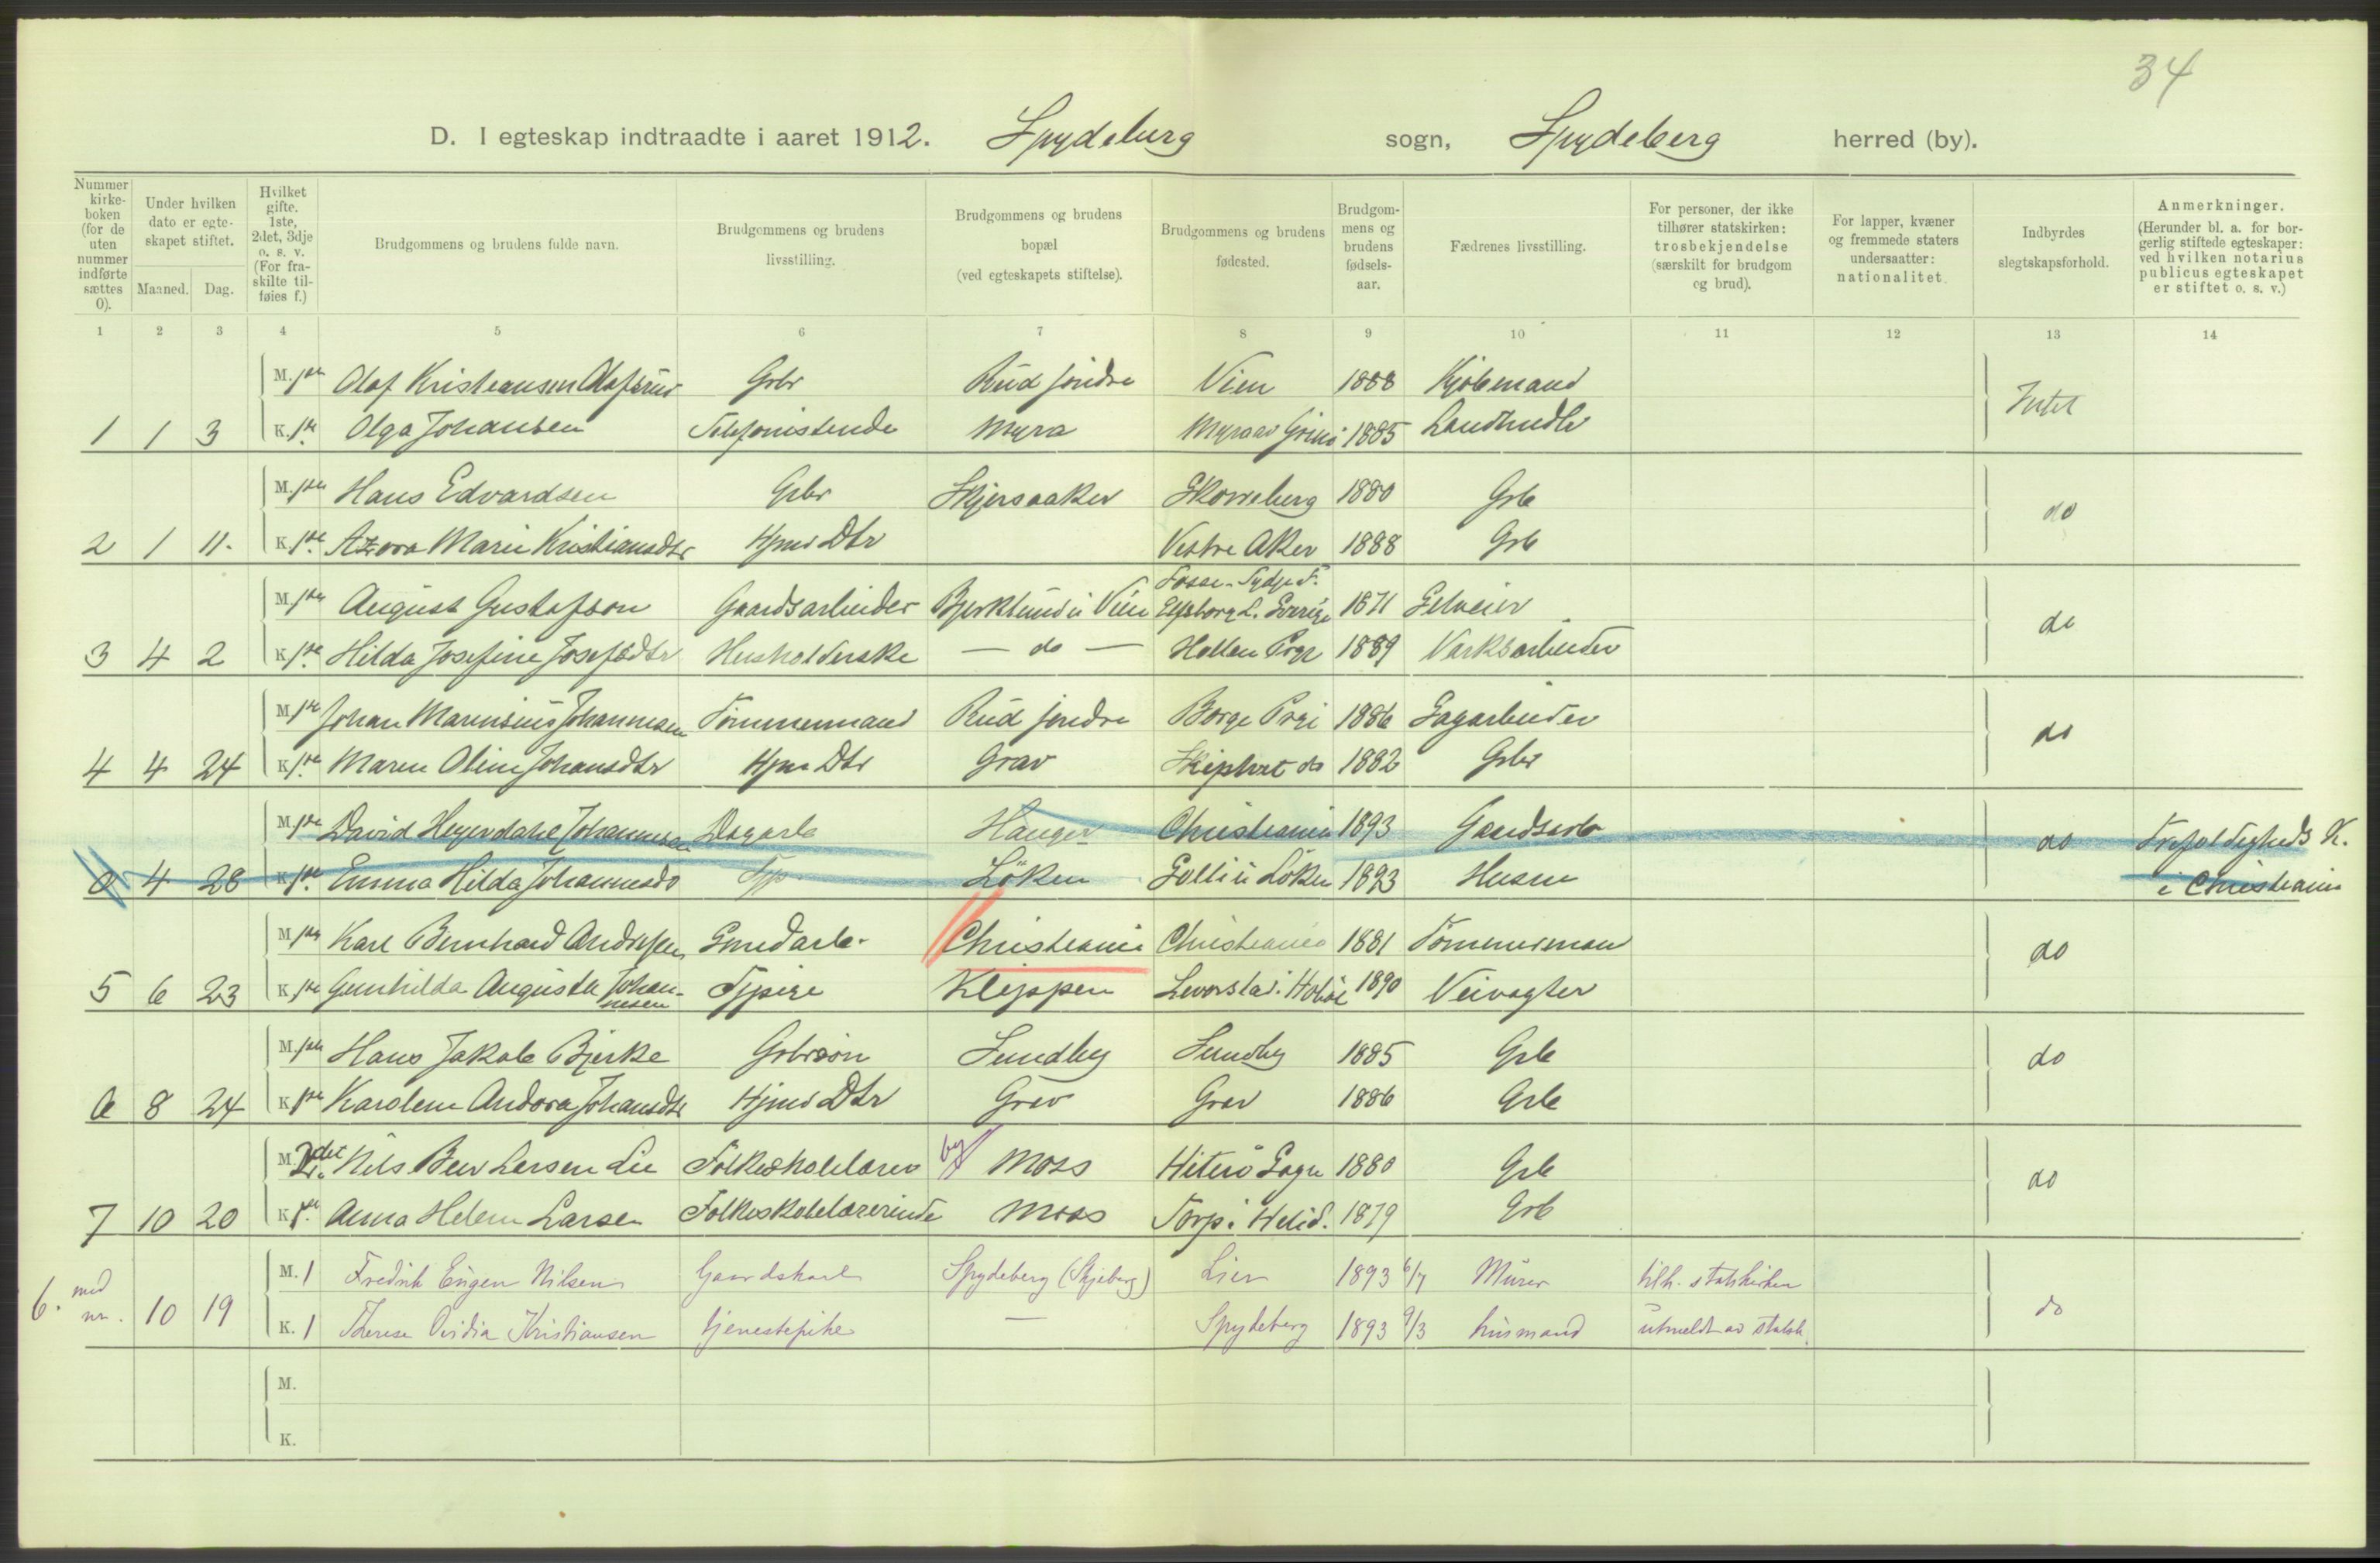 34
D. I egteskap indtraadte i aaret 1912. Spydeberg sogn, Spydeberg herred (by).
Nummer kirkeboken (for de uten nummer indførte sættes 0).
Under hvilken dato er egteskapet stiftet.
Maaned. Dag.
Hvilket gifte. 1ste, 2det, 3dje o. s. v. (For fraskilte tilføies f.)
Brudgommens og brudens fulde navn.
Brudgommens og brudens livsstilling.
Brudgommens og brudens bopæl (ved egteskapets stiftelse).
Brudgommens og brudens fødested.
Brudgommens og brudens fødselsaar.
Fædrenes livsstilling.
For personer, der ikke tilhører statskirken: trosbekjendelse (særskilt for brudgom og brud).
For lapper, kvæner og fremmede staters undersaatter: nationalitet.
Indbyrdes slegtskapsforhold.
Anmerkninger. (Herunder bl. a. for borgerlig stiftede egteskaper: ved hvilken notarius publicus egteskapet er stiftet o. s. v.)
1 2 3 4 5 6 7 8 9 10 11 12 13 14
M. 1ste Olaf Kristiansen Gbr Rud søndre Vien 1888 Kjøbmand Intet
1 1 3 K. 1ste Olga Johansen Telefonistinde Myra Myra av 1885 Landhandler
M. 1ste Hans Edvardsen Gbr Skjersaaker Skonneberg 1880 Grb do
2 1 11. K. 1ste Azora Marie Kristiansdtr Hjmv Dtr Vestre Aker 1888 Grb
M. 1ste August Gustafson Gaardsarbeider Bjerklund i Vien Elfsborg L. Sverige 1871 Selveier do
3 4 2 K. 1ste Hilda Josefine Josefsdtr Husholderske — do — Hollen Prgj 1889 Værksarbeider
M. 1ste Johan Marensius Johannesen Tømmermand Rud søndre Borge Prgj 1886 Sagarbeider do
4 4 24 K. 1ste Maren Oline Johansdtr Hjmv Dtr Grav Skiptvet do 1882 Gbr
M. 1ste David Heyerdahl Johannesen Dagarb Hauger Christiania 1893 Gaardsarb do Trefoldigheds K.
0 4 28 K. 1ste Emma Hilda Johannesd Tjp. Løken Sulli i Løken 1893 Husm i Christiania
M. 1ste Karl Bernhard Andersen Smedarb. Christiania Christiania 1881 Tømmerman do
5 6 23 K. 1ste Gunhilda Augusta Johannesen Tjpige Kleppen Levorsta i Hobøl 1890 Veivogter
M. 1ste Hans Jakob Bjerke Gbrsøn Sundby Sundby 1885 Grb do
6 8 24 K. 1ste Karolene Andora Johansdtr Hjmv Dtr Grav Grav 1886 Grb
M. 2det Nils Beer Larsen Lie Folkeskolelærer by Moss Hiterø Sogn 1880 Grb do
7 10 20 K. 1ste Anna Helene Larsen Folkeskolelærerinde Moss Torp i 1879 Grb
M. 1 Fredrik Eugen Nilsen Gaardskarl Spydeberg (Skjeberg) Lier 1893 6/7 Murer tilh. statskirken do
6. med nr. 10 19 K. 1 Therese Ovidia Kristiansen tjenestepike — Spydeberg 1893 9/3 husmand utmeldt av statsk.
M.
K.